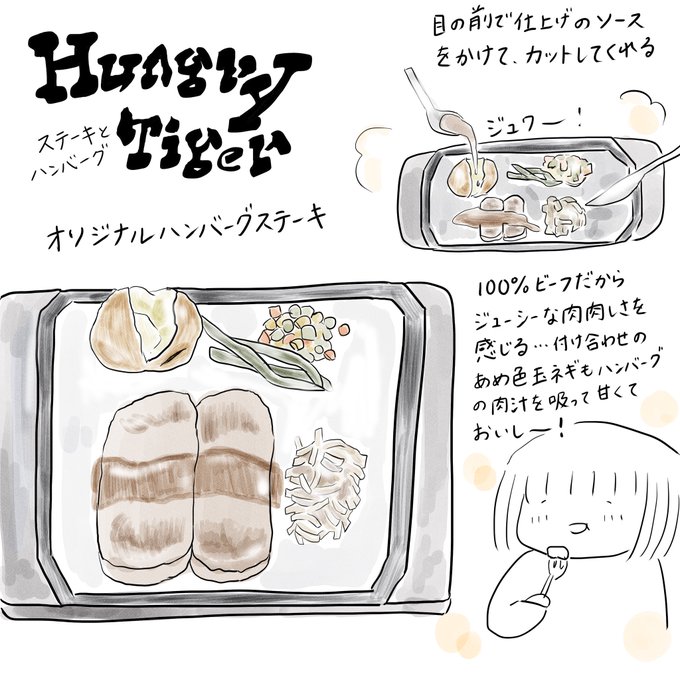 Hungry
Tiger
ステーキと
ハンバーグ
オリジナルハンバーグステーキ
目の前で仕上げのソース
をかけて、カットしてくれる
ジュワー!
100%ビーフだから
ジューシーな肉肉しさを
感じる…付け合わせの
あめ色玉ネギもハンバーグ
の肉汁を吸って甘くて
おいしー!